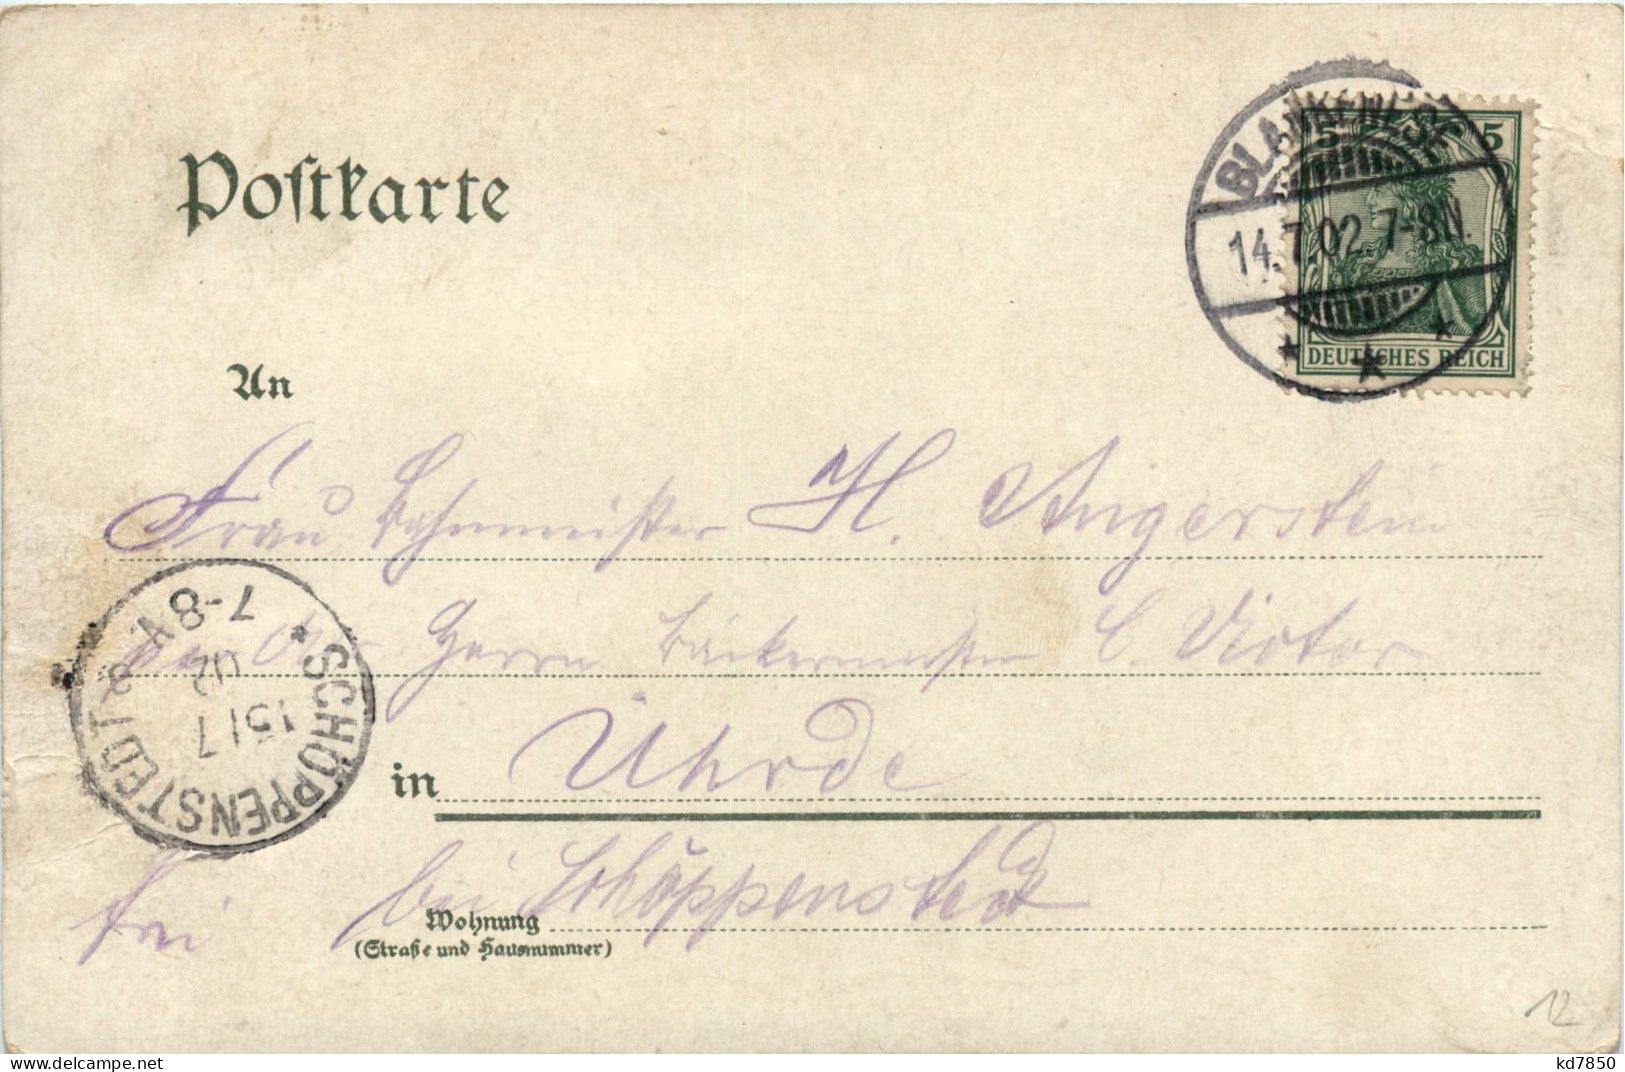 Postkarte
BLANKENESE
14.7.02.7-8N.
5 5
DEUTSCHES REICH
An
Frau Bahnmeister H. Angerstein
Herrn Bäckermeister C. Victor
in Uhrde
frei bei Schöppenstedt
Wohnung
(Straße und Hausnummer)
* SCHÖPPENSTEDT
15 7
02
7-8 N.
12
www.delcampe.net
kd7850